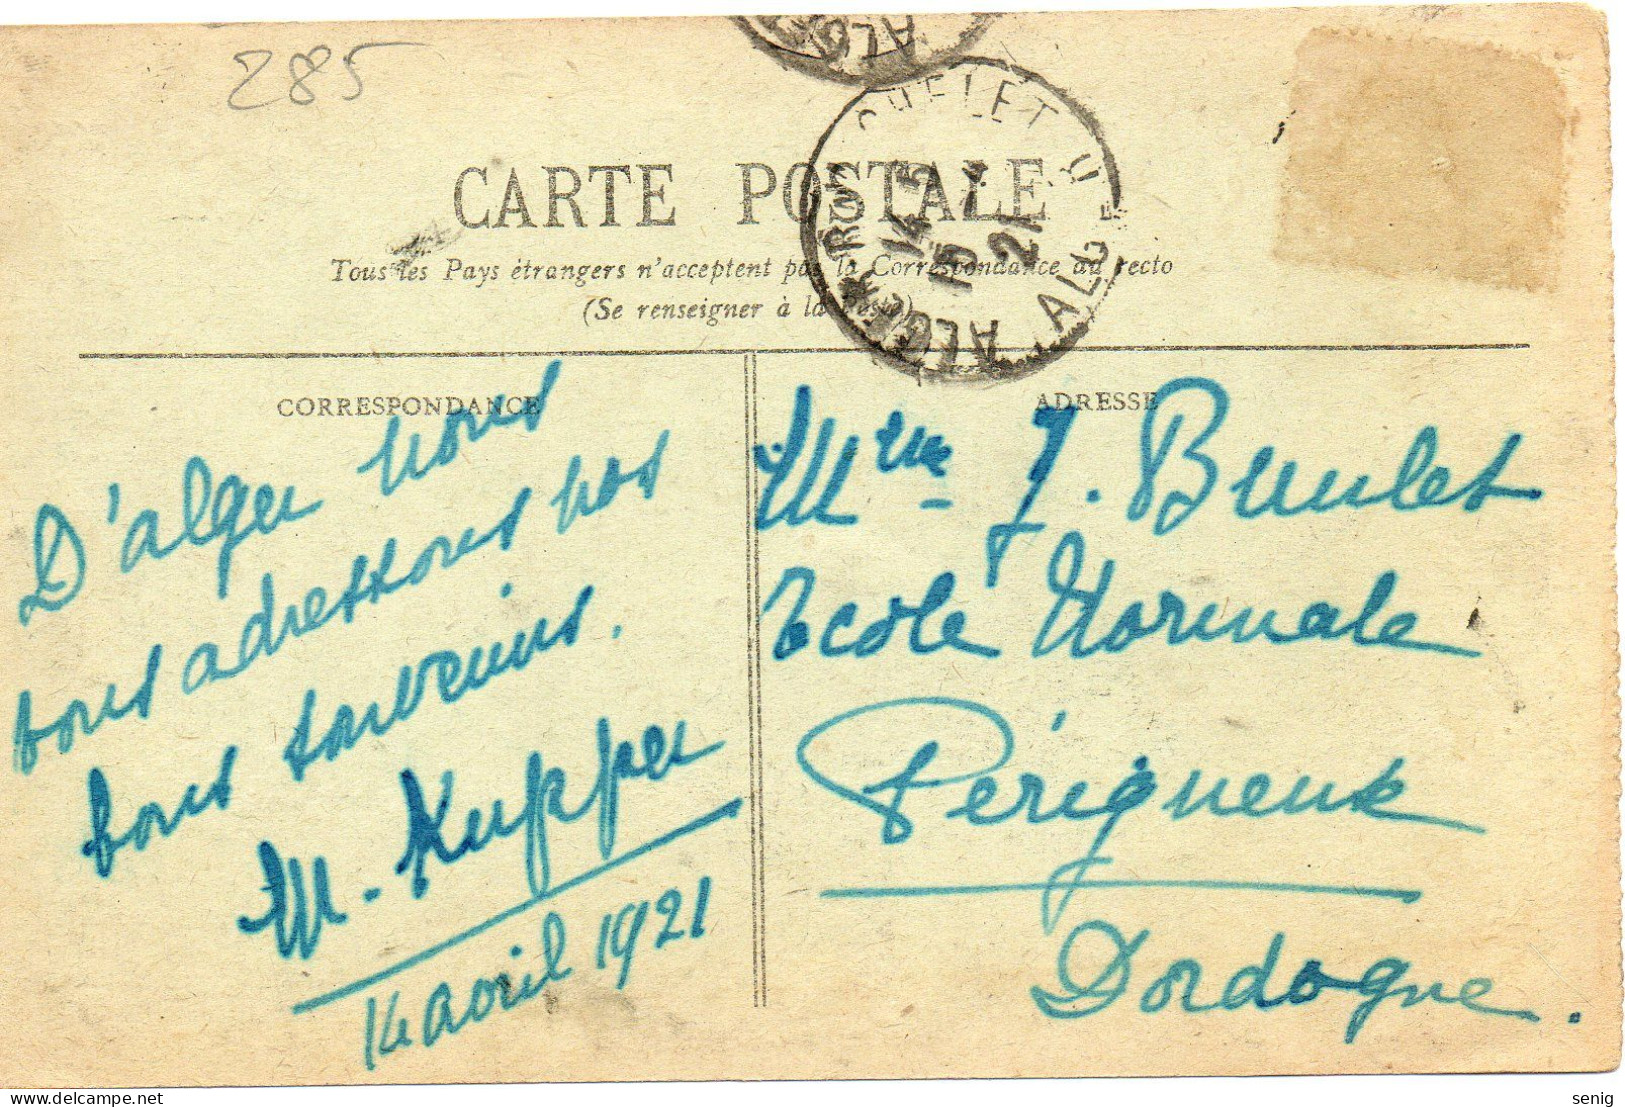 285
CARTE POSTALE
Tous les Pays étrangers n'acceptent pas la Correspondance au recto
(Se renseigner à la Poste)
CORRESPONDANCE
D'alger nous
vous adressons nos
bons souvenirs.
M. Kupper
14 avril 1921
ADRESSE
Mme J. Brulet
Ecole Normale
Périgueux
Dordogne.
ALGER
14 5
15 4
21
ALGER
senig